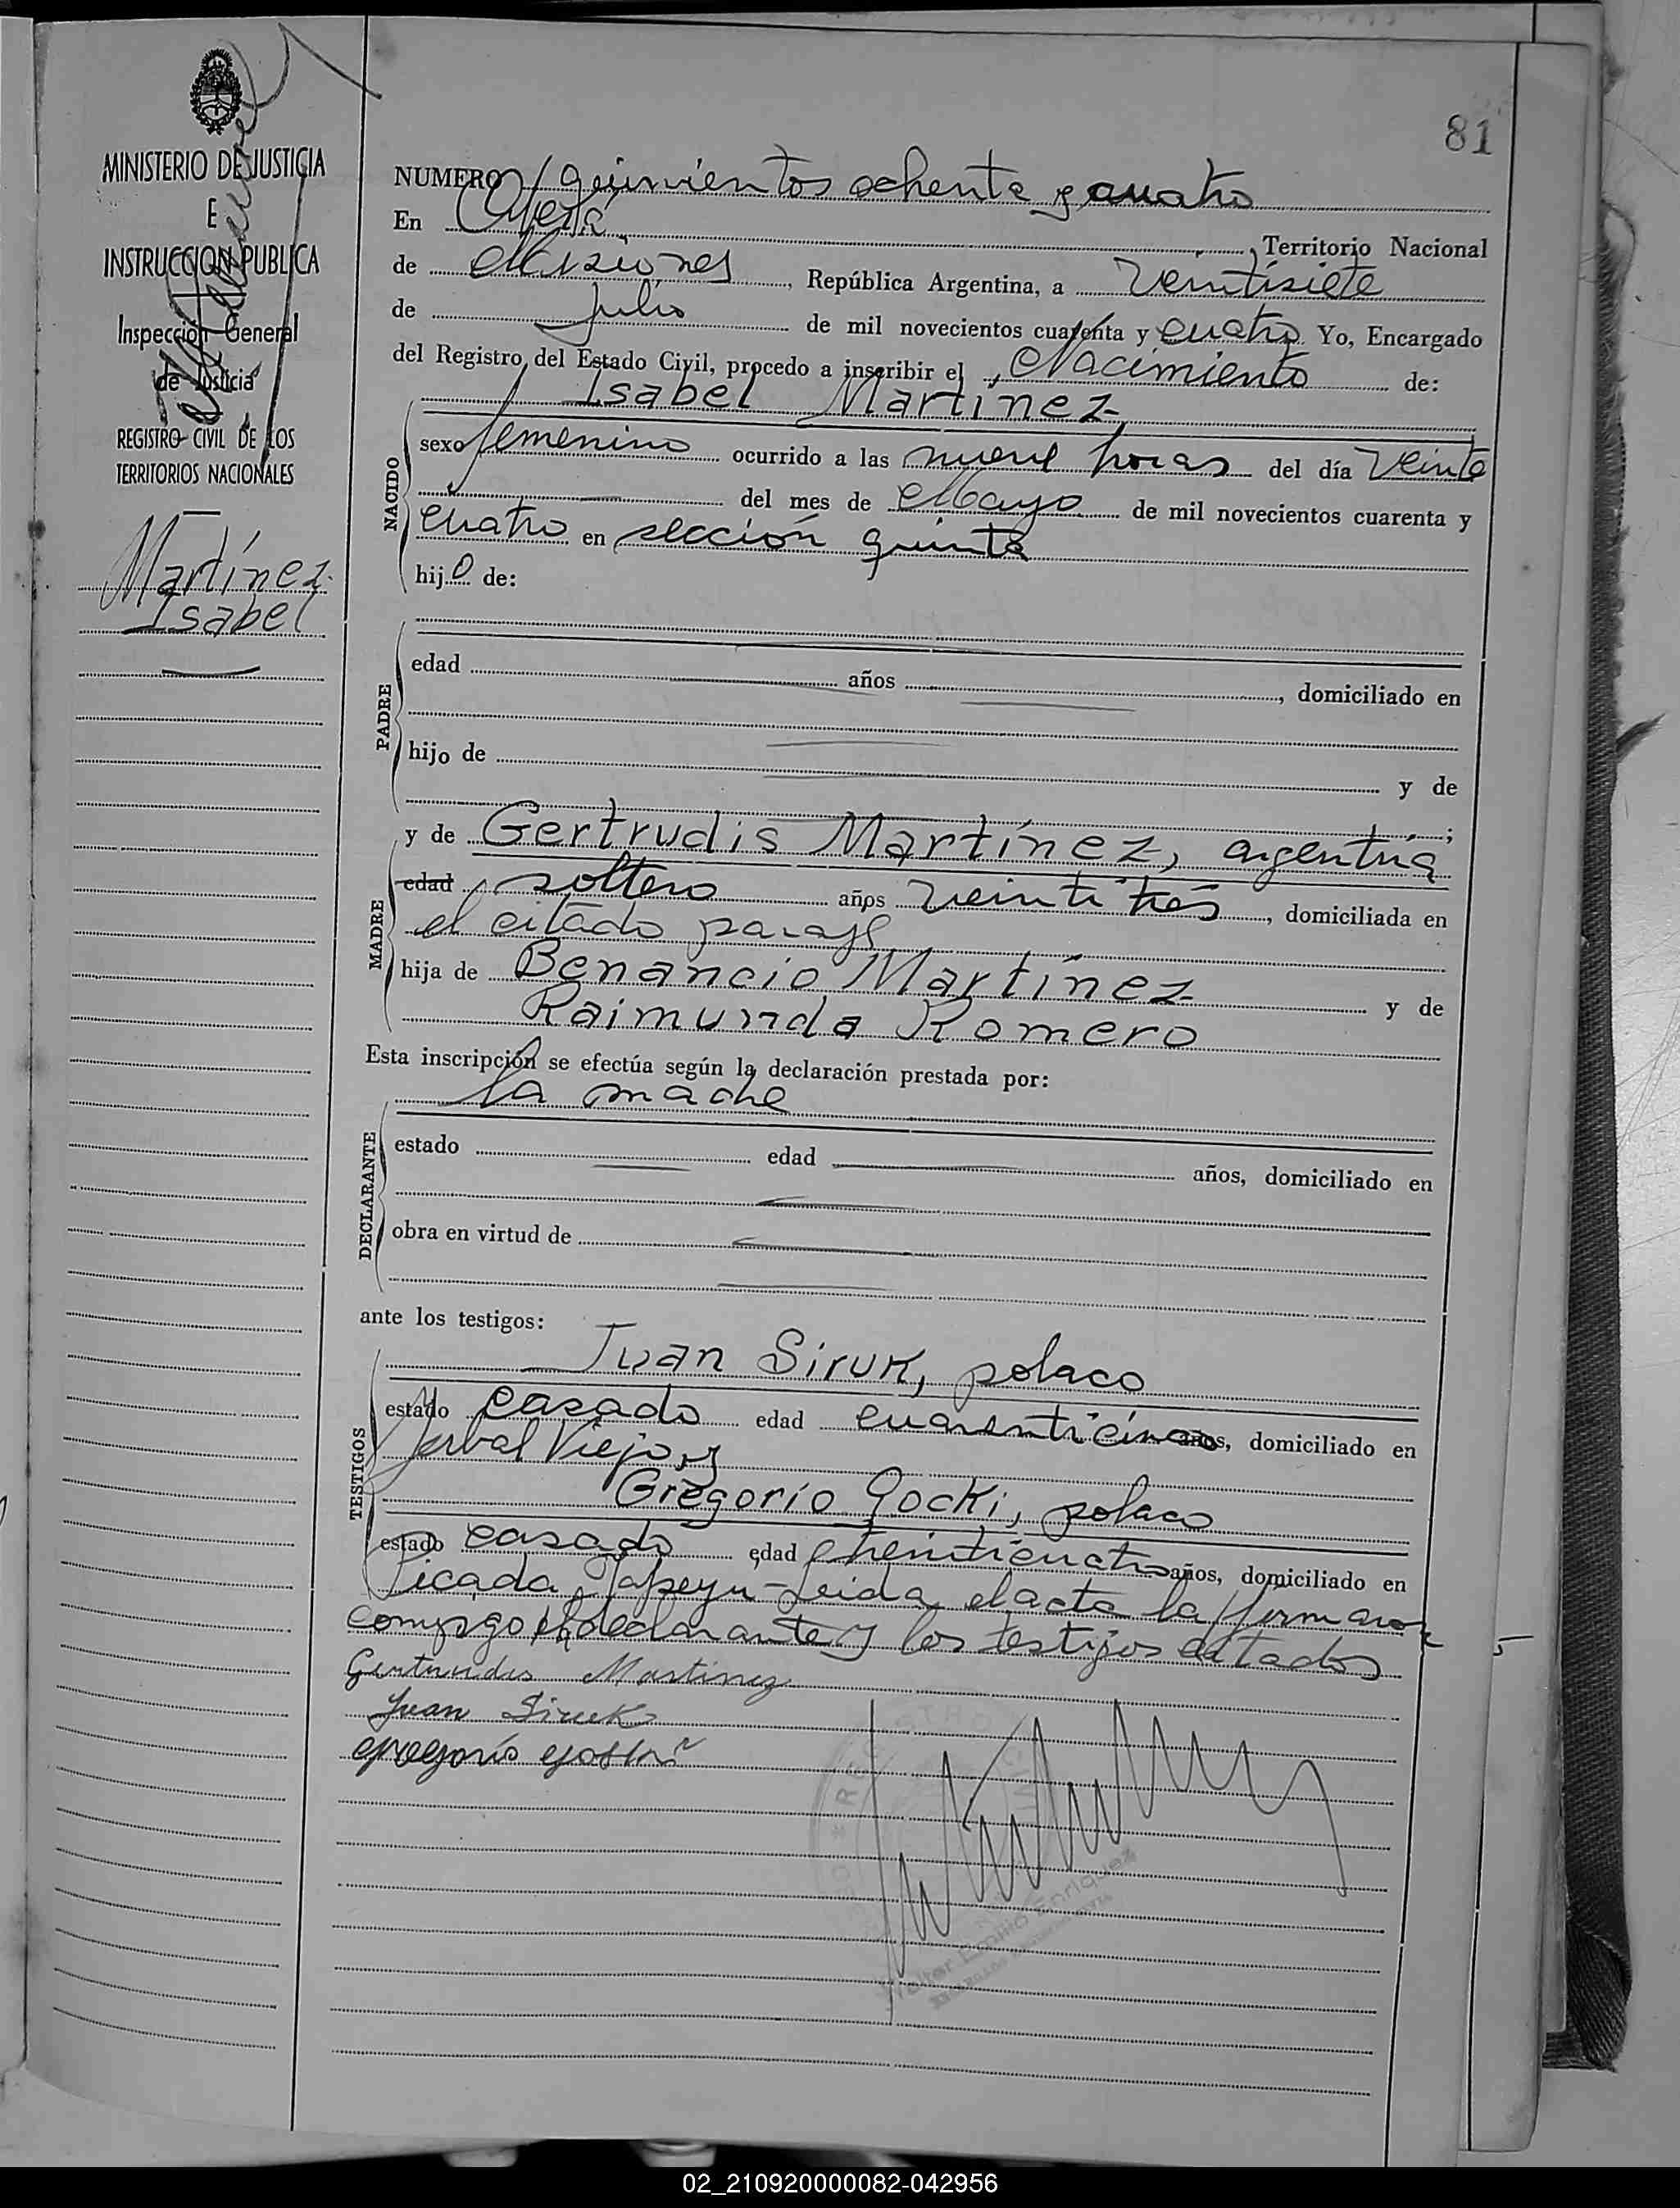 81
MINISTERIO DE JUSTICIA
E
INSTRUCCION PUBLICA
Inspección General
de Justicia
REGISTRO CIVIL DE LOS
TERRITORIOS NACIONALES
Martínez
Isabel
NUMERO quinientos ochenta y cuatro
En Oberá, Territorio Nacional
de Misiones, República Argentina, a veintisiete
de Julio de mil novecientos cuarenta y cuatro Yo, Encargado
del Registro del Estado Civil, procedo a inscribir el Nacimiento de:
Isabel Martínez,
NACIDO
sexo femenino ocurrido a las nueve horas del día veinte
del mes de Mayo de mil novecientos cuarenta y
cuatro en sección quinta
hija de:
PADRE
edad años, domiciliado en
hijo de y de
;
MADRE
y de Gertrudis Martínez, argentina
edad soltera años veintitrés, domiciliada en
el citado paraje
hija de Benancio Martínez y de
Raimunda Romero
Esta inscripción se efectúa según la declaración prestada por:
la madre
DECLARANTE
estado edad años, domiciliado en
obra en virtud de
ante los testigos:
TESTIGOS
Juan Siruk, polaco
estado casado edad cuarenticinco años, domiciliado en
Yerbal Viejo y
Gregorio Gocki, polaco
estado casado edad treinticuatro años, domiciliado en
Picada Yapeyu - Leida el acta la firmaron
conmigo la declarante y los testigos citados
Gertrudis Martinez
Juan Siruk
Walter Emilio Enriquez
02_210920000082-042956